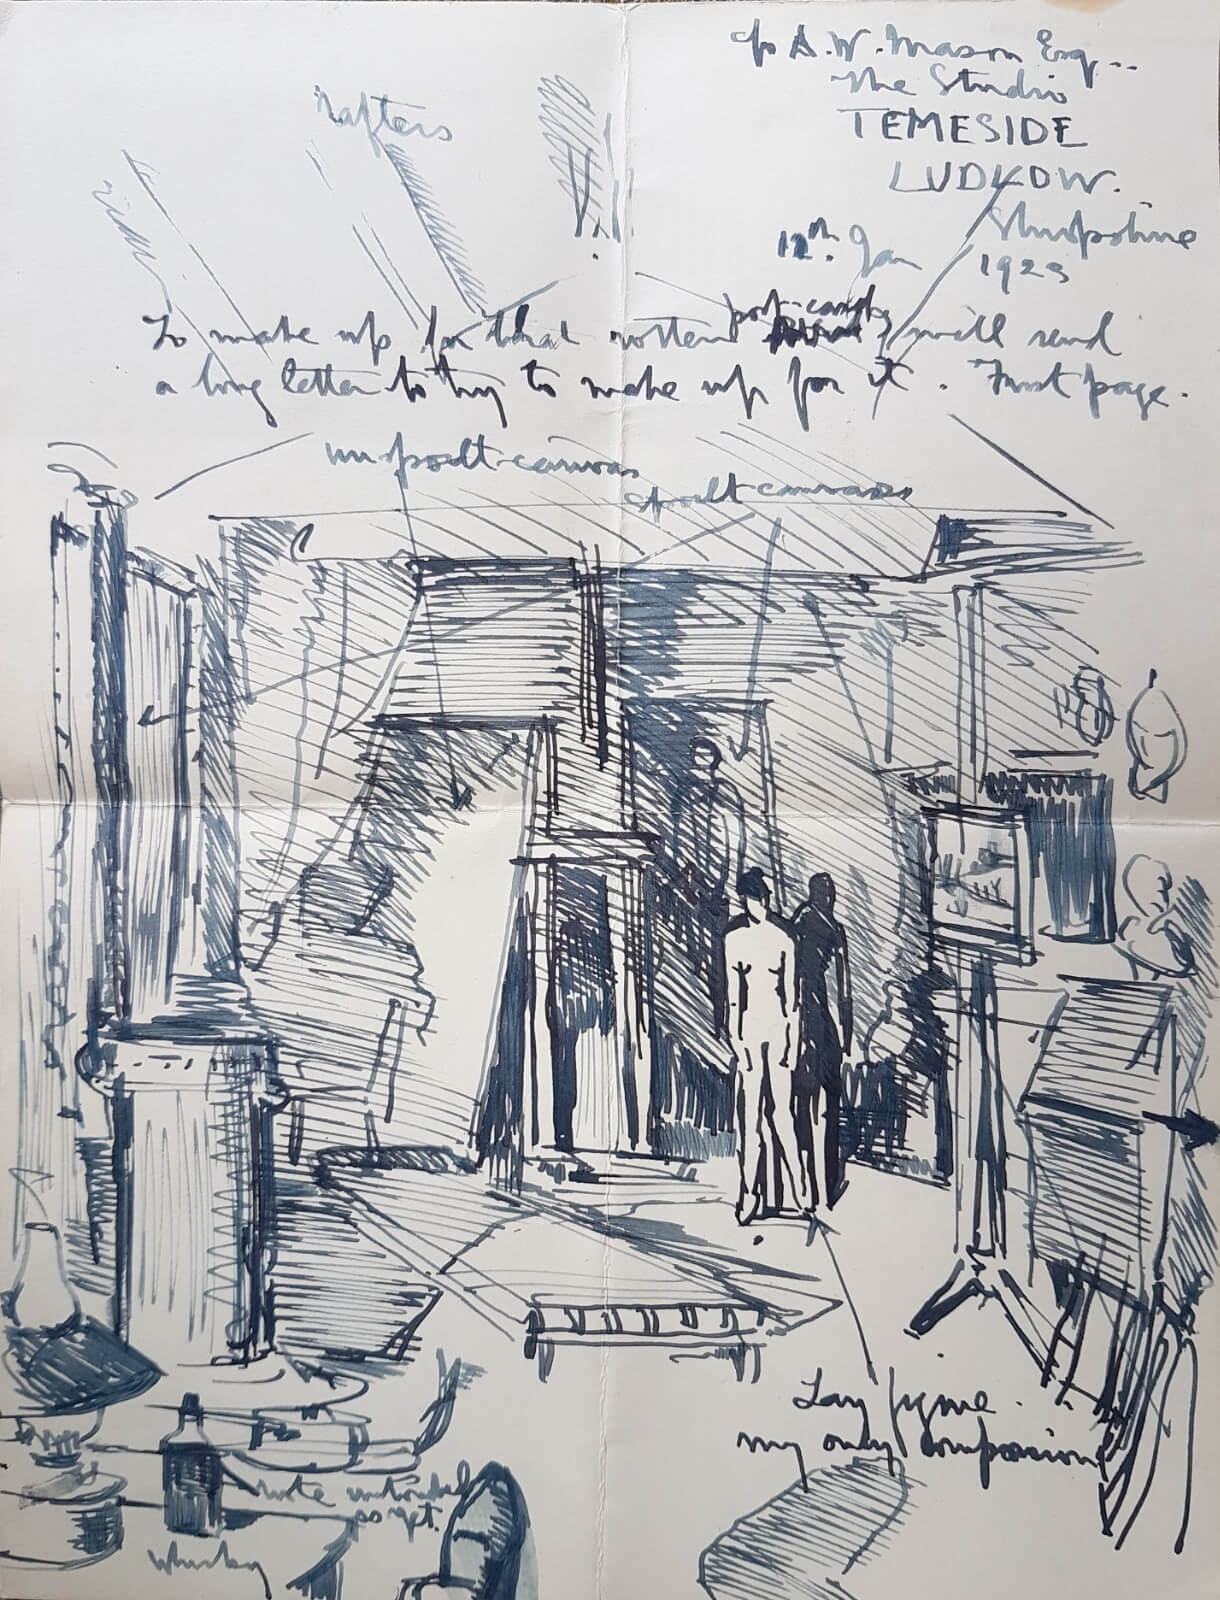 c/o A. W. Mason Esq..
The Studio
TEMESIDE
LUDLOW.
Shropshire
12th. Jan 1923
rafters
To make up for that rotten post-card, I will send
a long letter to try to make up for it. First page.
un-spoilt-canvas
spoilt canvases
Lay figure.
my only companion
note
Whisky